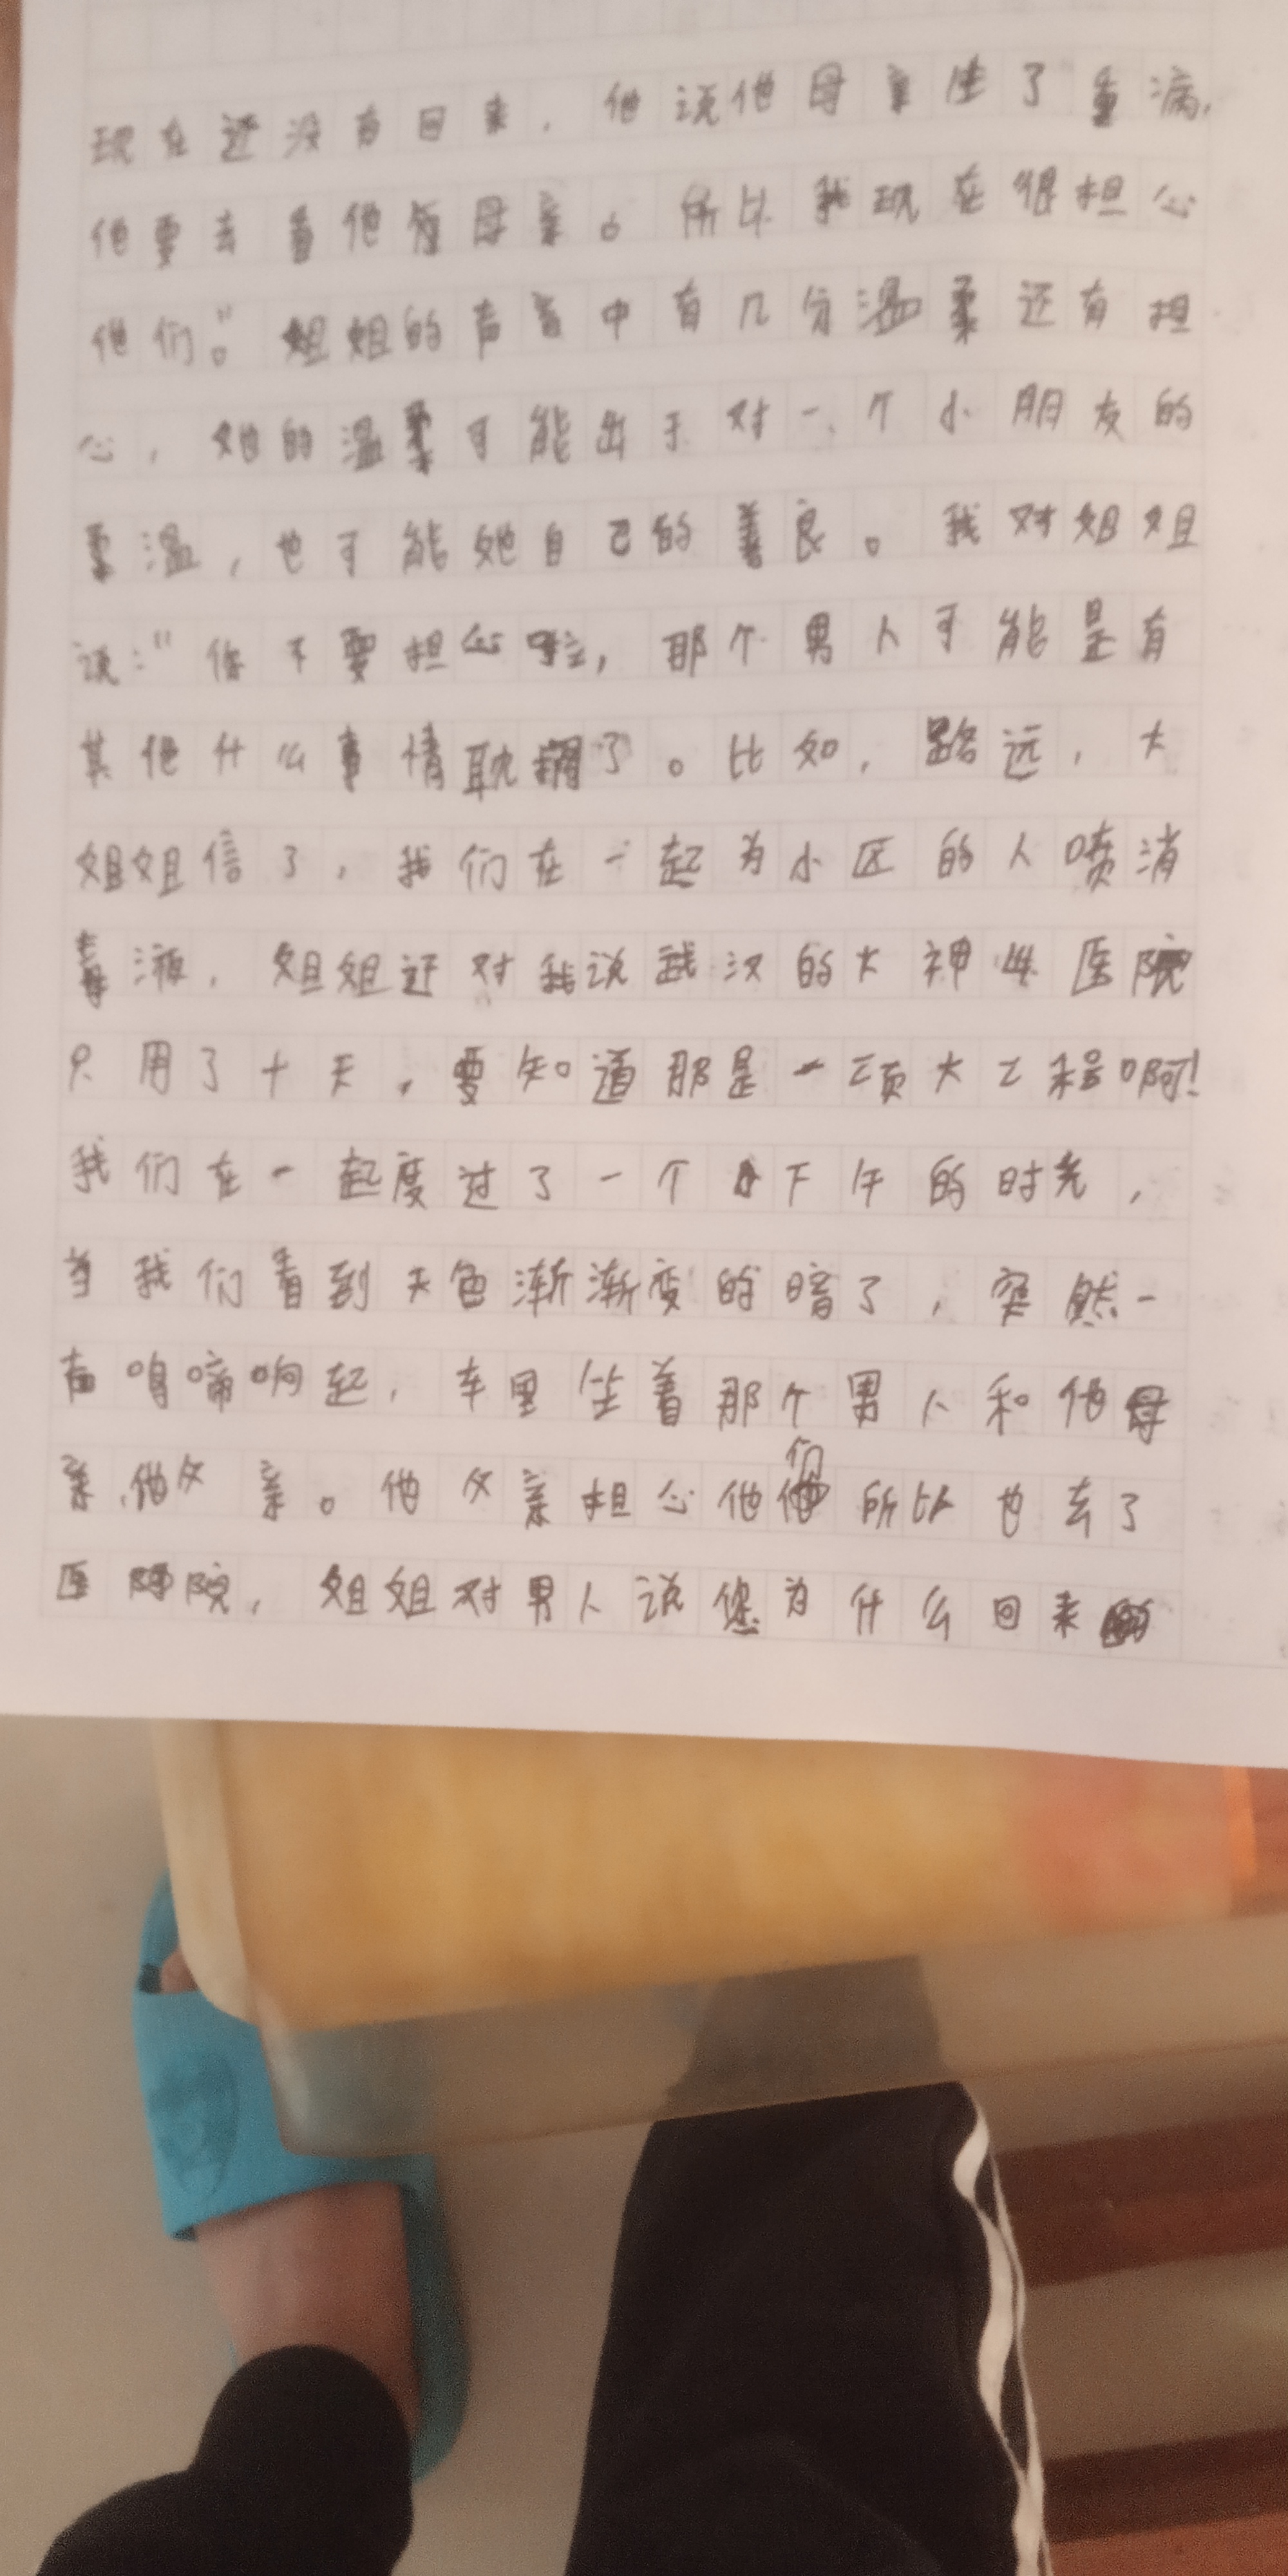 现在还没有回来，他说他母亲生了重病，
他要去看他母亲。所以我现在很担心
他们。”姐姐的声音中有几分温柔还有担
心，她的温柔可能出于对一个小朋友的
柔温，也可能她自己的善良。我对姐姐
说：“你不要担心啦，那个男人可能是有
其他什么事情耽搁了。比如，路远，大
姐姐信了，我们在一起为小区的人喷消
毒液，姐姐还对我说武汉的大神山医院
只用了十天，要知道那是一项大工程啊！
我们在一起度过了一个下午的时光，
当我们看到天色渐渐变的暗了，突然一
声鸣啼响起，车里坐着那个男人和他母
亲，他父亲。他父亲担心他们所以也去了
医院，姐姐对男人说您为什么回来